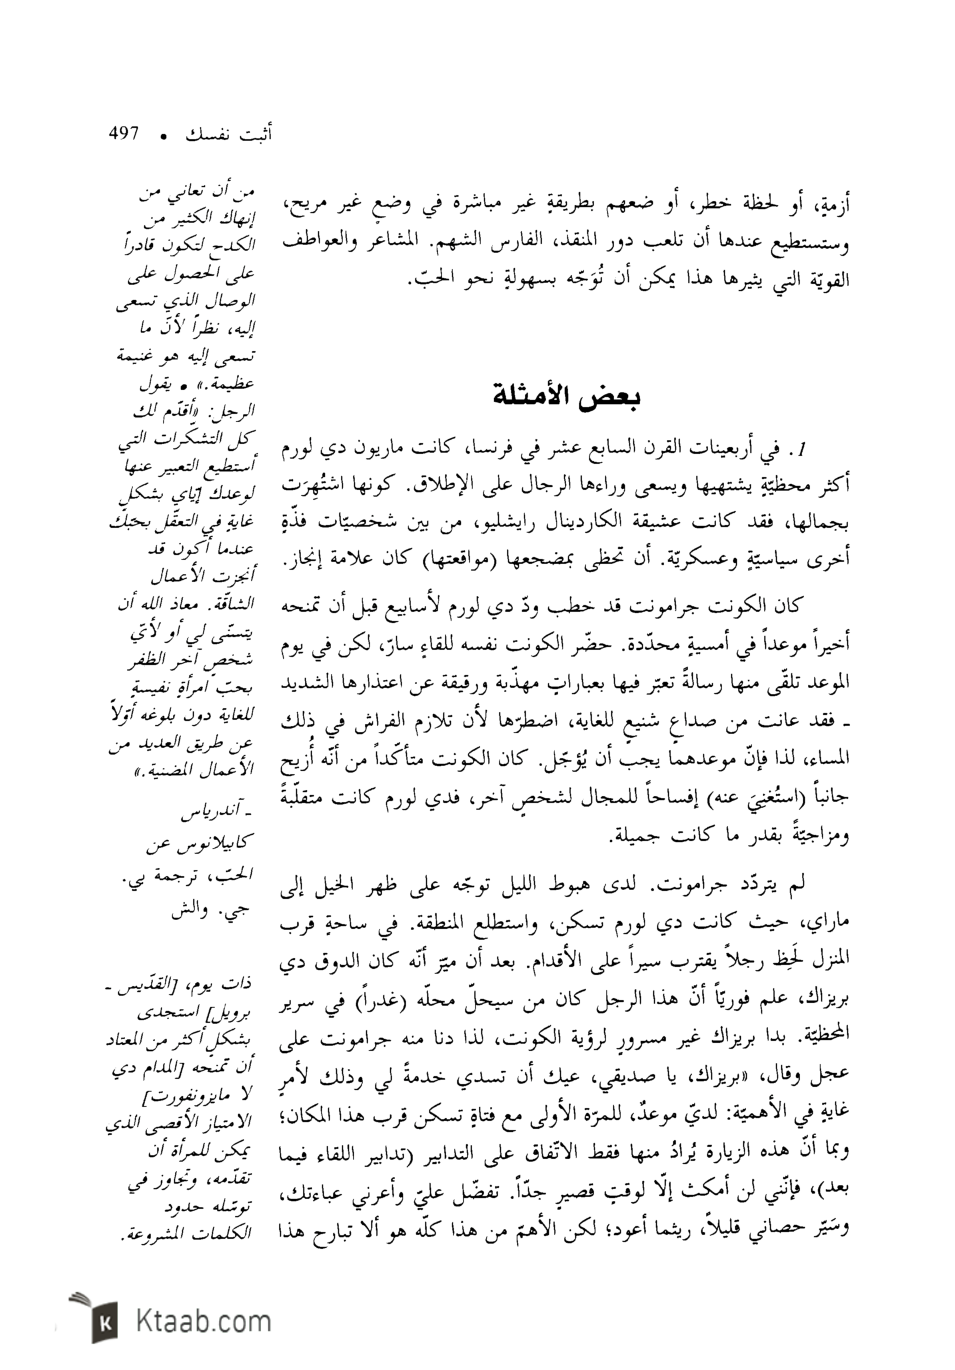 أثبت نفسك • 497
أزمةٍ، أو لحظة خطر، أو ضعهم بطريقةٍ غير مباشرة في وضعٍ غير مريح،
وستستطيع عندها أن تلعب دور المنقذ، الفارس الشهم. المشاعر والعواطف
القويّة التي يثيرها هذا يمكن أن تُوَجّه بسهولةٍ نحو الحبّ.
بعض الأمثلة
1. في أربعينات القرن السابع عشر في فرنسا، كانت ماريون دي لورم
أكثر محظيّةٍ يشتهيها ويسعى وراءها الرجال على الإطلاق. كونها اشتُهِرَت
بجمالها، فقد كانت عشيقة الكاردينال رايشليو، من بين شخصيّات فذّةٍ
أخرى سياسيّةٍ وعسكريّة. أن تحظى بمضجعها (مواقعتها) كان علامة إنجاز.
كان الكونت جرامونت قد خطب ودّ دي لورم لأسابيع قبل أن تمنحه
أخيراً موعداً في أمسيةٍ محدّدة. حضّر الكونت نفسه للقاءٍ سارّ، لكن في يوم
الموعد تلقّى منها رسالةً تعبّر فيها بعباراتٍ مهذّبة ورقيقة عن اعتذارها الشديد
ـ فقد عانت من صداعٍ شنيعٍ للغاية، اضطرّها لأن تلازم الفراش في ذلك
المساء، لذا فإنّ موعدهما يجب أن يُؤجّل. كان الكونت متأكّداً من أنّه أُزيح
جانباً (استُغنِيَ عنه) إفساحاً للمجال لشخصٍ آخر، فدي لورم كانت متقلّبةً
ومزاجيّةً بقدر ما كانت جميلة.
لم يتردّد جرامونت. لدى هبوط الليل توجّه على ظهر الخيل إلى
ماراي، حيث كانت دي لورم تسكن، واستطلع المنطقة. في ساحةٍ قرب
المنزل لَحِظ رجلاً يقترب سيراً على الأقدام. بعد أن ميّز أنّه كان الدوق دي
بريزاك، علم فوريّاً أنّ هذا الرجل كان من سيحلّ محلّه (غدراً) في سرير
المحظيّة. بدا بريزاك غير مسرورٍ لرؤية الكونت، لذا دنا منه جرامونت على
عجل وقال، «بريزاك، يا صديقي، عيك أن تسدي خدمةً لي وذلك لأمرٍ
غايةٍ في الأهميّة: لديّ موعدٌ، للمرّة الأولى مع فتاةٍ تسكن قرب هذا المكان؛
وبما أنّ هذه الزيارة يُرادُ منها فقط الاتّفاق على التدابير (تدابير اللقاء فيما
بعد)، فإنّني لن أمكث إلّا لوقتٍ قصيرٍ جدّاً. تفضّل عليّ وأعرني عباءتك،
وسَيّر حصاني قليلاً، ريثما أعود؛ لكن الأهمّ من هذا كلّه هو ألا تبارح هذا
من أن تعاني من
إنهاك الكثير من
الكدح لتكون قادراً
على الحصول على
الوصال الذي تسعى
إليه، نظراً لأنّ ما
تسعى إليه هو غنيمة
عظيمة.» • يقول
الرجل: «أقدّم لك
كل التشكّرات التي
أستطيع التعبير عنها
لوعدك إيّاي بشكلٍ
غايةٍ في التعقّل بحبّك
عندما أكون قد
أنجزت الأعمال
الشاقّة. معاذ الله أن
يتسنّى لي أو لأيّ
شخصٍ آخر الظفر
بحبّ امرأةٍ نفيسةٍ
للغاية دون بلوغه أوّلاً
عن طريق العديد من
الأعمال المضنية.»
ـ آندرياس
كابيلانوس عن
الحبّ، ترجمة بي.
جي. والش
ذات يوم، [القدّيس ـ
برويل] استجدى
بشكلٍ أكثر من المعتاد
أن تمنحه [المدام دي
لا مايزونفورت]
الامتياز الأقصى الذي
يمكن للمرأة أن
تقدّمه، وتجاوز في
توسّله حدود
الكلمات المشروعة.
Ktaab.com